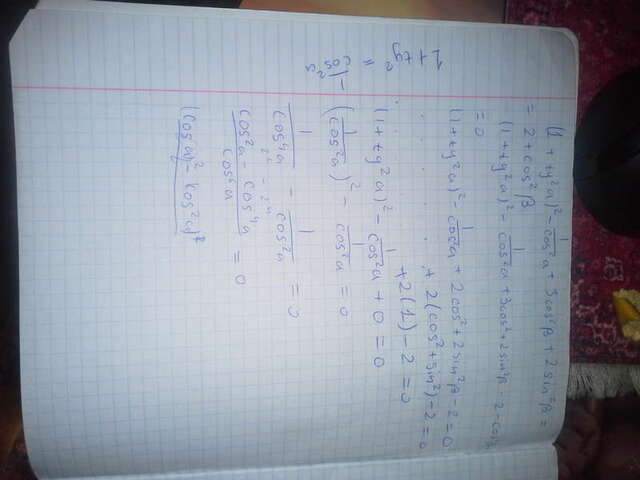 (1 + tg²a)² - 1/cos²a + 3cos²β + 2sin²β =
= 2 + cos²β
(1 + tg²a)² - 1/cos²a + 3cos² + 2sin²β - 2 - cos²
= 0
(1 + tg²a)² - 1/cos²a + 2cos² + 2sin²β - 2 = 0
+ 2(cos² + sin²) - 2 = 0
+ 2(1) - 2 = 0
(1 + tg²a)² - 1/cos²a + 0 = 0
(1/cos²a)² - 1/cos²a = 0
1/cos⁴a - 1/cos²a = 0
cos²a - cos⁴a / cos⁶a = 0
1 + tg² = 1/cos²